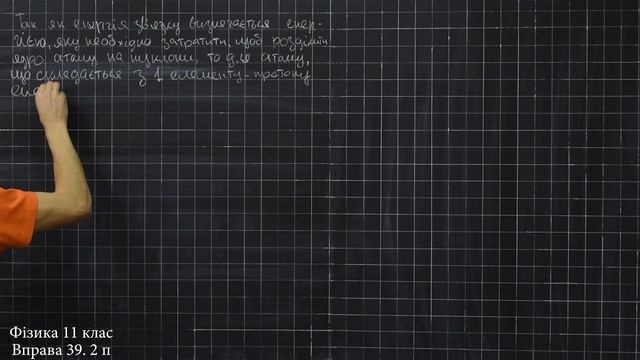 Так як енергія зв'язку визначається енер-
гією, яку необхідно затратити, щоб розділити
ядро атому на нуклони, то для атому,
що складається з 1 елементу-протону
Фізика 11 клас
Вправа 39. 2 п